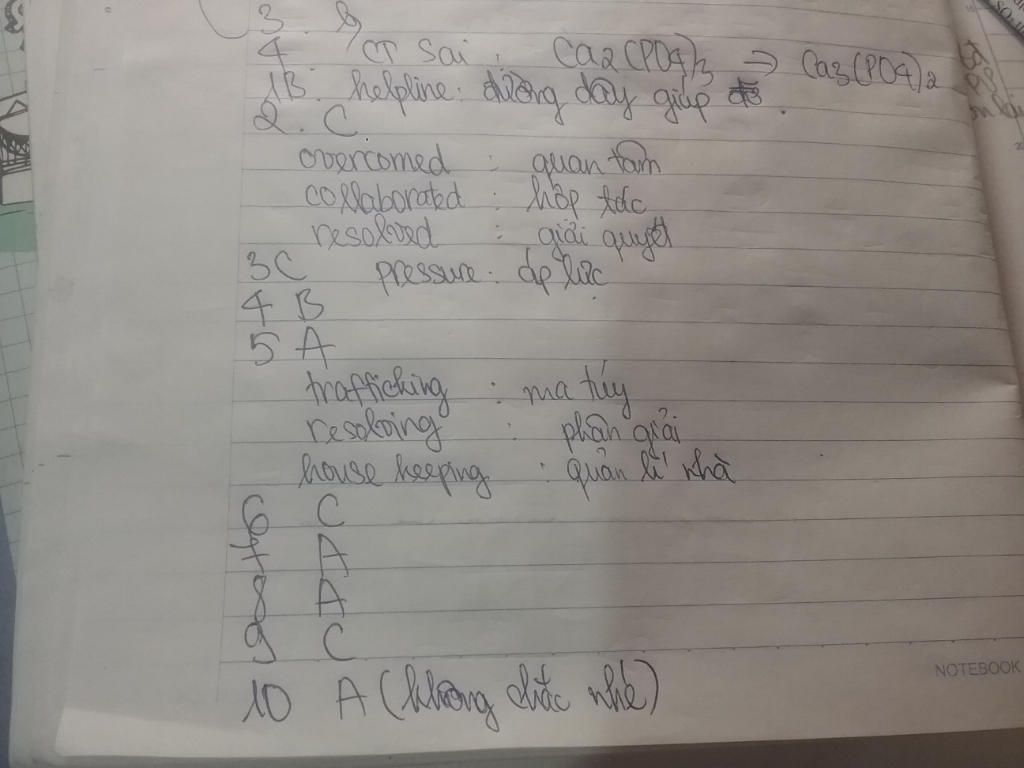 3.
4 CT Sai, Ca2(PO4)3 → Ca3(PO4)2
1B. helpline: đường dây giúp đỡ.
2. C
overcomed : quan tâm
collaborated : hợp tác
resolved : giải quyết
3C pressure: áp lực
4 B
5 A
trafficking : ma túy
resolving : phân giải
house keeping : quản lí nhà
6 C
7 A
8 A
9 C
NOTEBOOK
10 A (không chắc nhé)